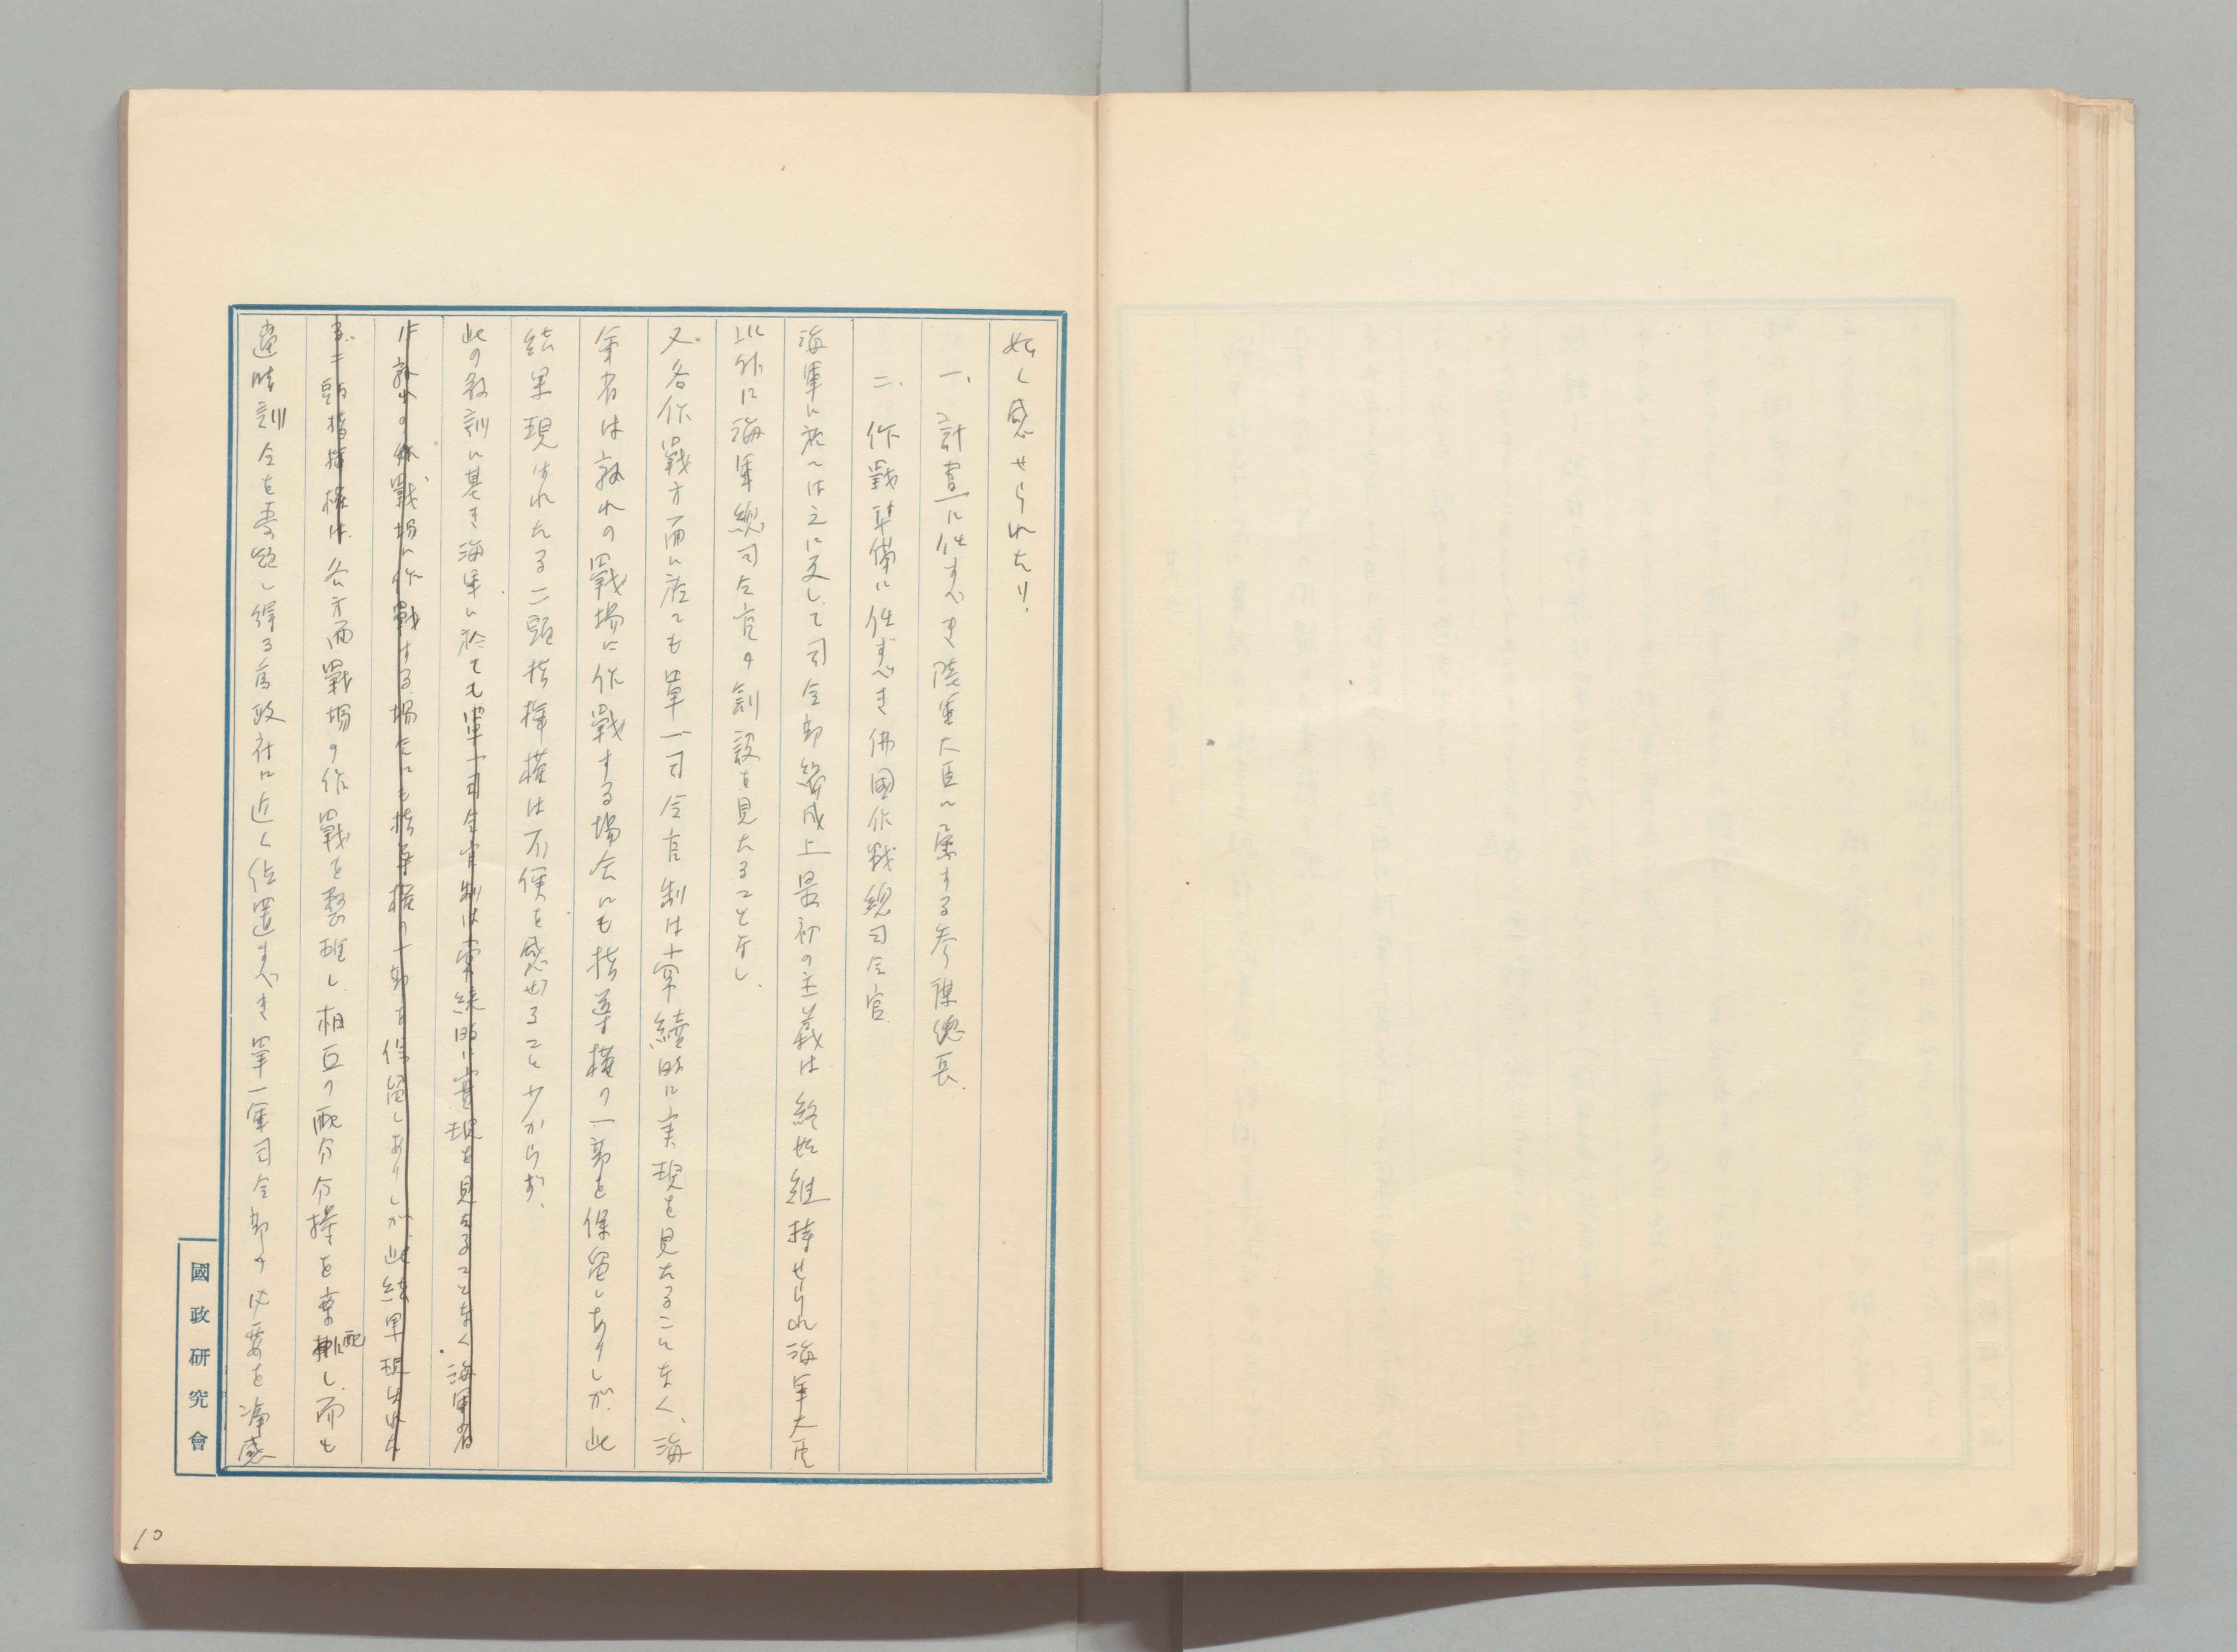 如く感せられたり.
一、計畫に任すへき陸軍大臣に屬する参謀總長.
二、作戰準備に任すへき佛國作戦總司令官
海軍に於ては之に反して司令部編成上最初の主義は終始維持せられ海軍大臣
此外に海軍總司令官の創設を見たることなし.
又各作戰方面に在ても單一司令官制は常續的に実現を見たることなく、海
軍省は孰れの戰場に作戰する場合にも指導權の一部を保留しありしが、此
結果現はれたる二頭指揮權は不便を感せること少からず、
此の教訓に基き海軍に於ても單一司令官制は常續的に實現を見ることなく海軍省
は孰れの戰場に作戰する場合にも指導權の一部を保留しありしが此結果現はれた
る二頭指揮權は各方面戰場の作戰を整理し、相互の配分を案配し、而も
適時訓令を受領し得る爲政府に近く位置すへき單一軍司令部の必要を痛感
國政研究會
10